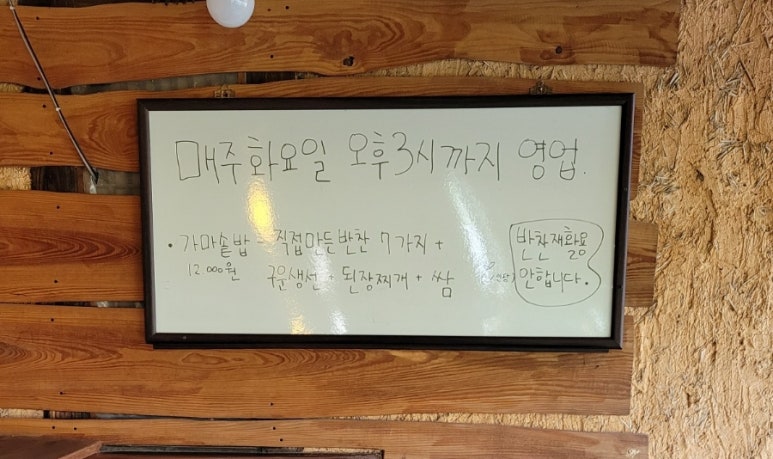 매주 화요일 오후 3시 까지 영업.
• 가마솥밥 - 직접만든반찬 7가지 +
12.000원 구운생선 + 된장찌개 + 쌈
반찬재활용
안합니다.